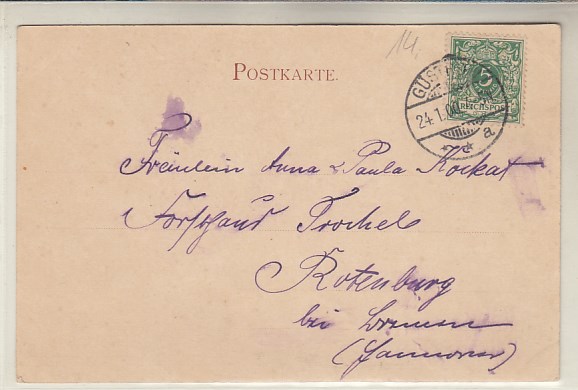 14.
POSTKARTE.
5
REICHSPOST
GÜST
24.1.00
a
Fräulein Anna & Paula Kockat
Forsthaus Trochel
Rotenburg
bei Bremen
(Hannover)